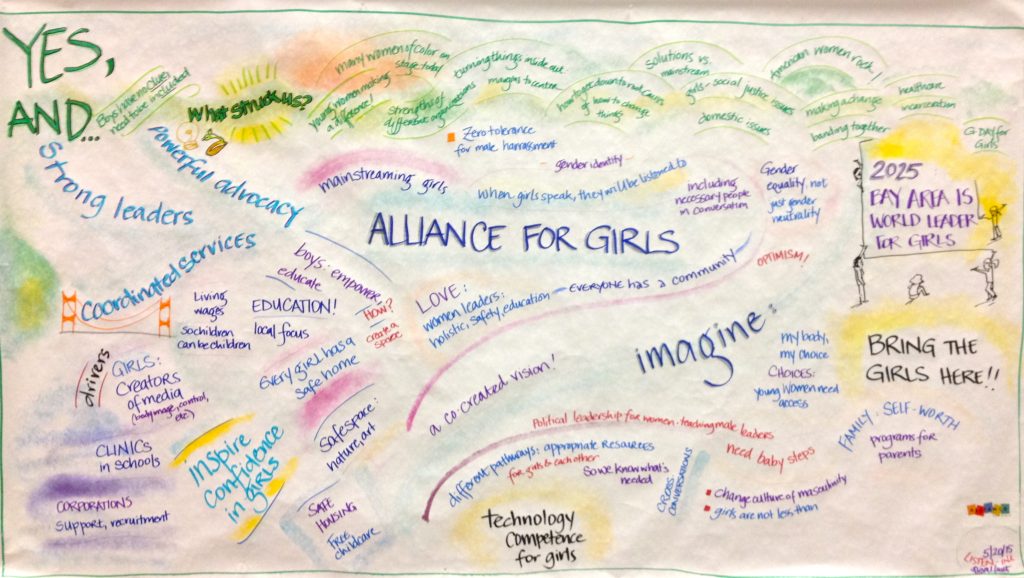 YES,
AND...
Boys have involved
need to be included
What struck us?
many women of color on
stage today
young women making
a difference!
strengths of
different organizations
turning things inside out
margins to center
how to get down to root causes
of how to change
things
solutions vs.
mainstream
girls - social justice issues
domestic issues
American women rock!
making a change
banding together
healthcare
incarceration
G-DAY for
Girls
Strong leaders
Powerful advocacy
Coordinated services
mainstreaming girls
Zero tolerance
for male harrassment
gender identity
when girls speak, they will be listened to
including
necessary people
in conversation
Gender
equality, not
just gender
neutrality
2025
BAY AREA IS
WORLD LEADER
FOR GIRLS
ALLIANCE FOR GIRLS
boys: empower
educate
HOW?
create a
space
LOVE:
women leaders:
holistic, safety, education
EVERYONE has a community
OPTIMISM!
Living
wages
so children
can be children
EDUCATION!
local focus
drivers
GIRLS:
Creators
of media
(body image, control,
etc)
EVERY GIRL has a
safe home
imagine:
my body,
my choice
CHOICES:
young women need
access
BRING THE
GIRLS HERE!!
a co-created vision!
CLINICS
in schools
inspire
confidence
in girls
safe space:
nature, art
CORPORATIONS
support, recruitment
SAFE
HOUSING
FREE
childcare
Political leadership for women - teaching male leaders
different pathways: appropriate resources
for girls to each other
so we know what's
needed
CROSS
CONVERSATIONS
need baby steps
change culture of masculinity
girls are not less than
FAMILY. SELF-WORTH
programs for
parents
technology
competence
for girls
5/20/15
LISTEN. INK